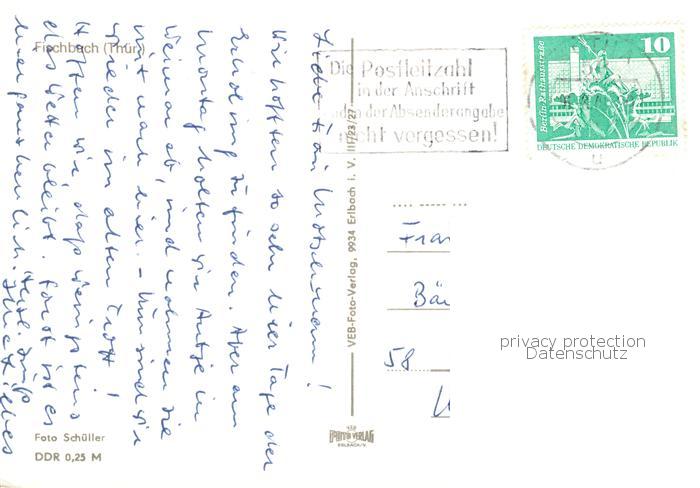 Fischbach (Thür.)
Liebe Frau Motschmann!
Wir hofften so sehr hier Tage der
Erholung zu finden. Aber am
Montag holten wir Antje in
Weimar ab, und nahmen sie
mit nach hier. - Nun sind wir
wieder im alten Trott!
Hoffen wir daß wenigstens
das Wetter bleibt. Sonst ist es
hier ganz herrlich.
Foto Schüller
DDR 0,25 M
VEB-Foto-Verlag, 9934 Erlbach i. V. III/23/27
FOTO VERLAG
ERLBACH/V.
Die Postleitzahl
in der Anschrift
und in der Absenderangabe
nicht vergessen!
10
Berlin · Rathausstraße
DEUTSCHE DEMOKRATISCHE REPUBLIK
u
Frau
58
privacy protection
Datenschutz